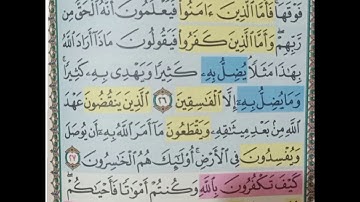 فَوْقَهَا فَأَمَّا ٱلَّذِينَ ءَامَنُوا۟ فَيَعْلَمُونَ أَنَّهُ ٱلْحَقُّ مِن
رَّبِّهِمْ وَأَمَّا ٱلَّذِينَ كَفَرُوا۟ فَيَقُولُونَ مَاذَآ أَرَادَ ٱللَّهُ
بِهَٰذَا مَثَلًا يُضِلُّ بِهِۦ كَثِيرًا وَيَهْدِى بِهِۦ كَثِيرًا
وَمَا يُضِلُّ بِهِۦٓ إِلَّا ٱلْفَٰسِقِينَ ٢٦ ٱلَّذِينَ يَنقُضُونَ عَهْدَ
ٱللَّهِ مِنۢ بَعْدِ مِيثَٰقِهِۦ وَيَقْطَعُونَ مَآ أَمَرَ ٱللَّهُ بِهِۦٓ أَن يُوصَلَ
وَيُفْسِدُونَ فِى ٱلْأَرْضِ أُو۟لَٰٓئِكَ هُمُ ٱلْخَٰسِرُونَ ٢٧
كَيْفَ تَكْفُرُونَ بِٱللَّهِ وَكُنتُمْ أَمْوَٰتًا فَأَحْيَٰكُمْ